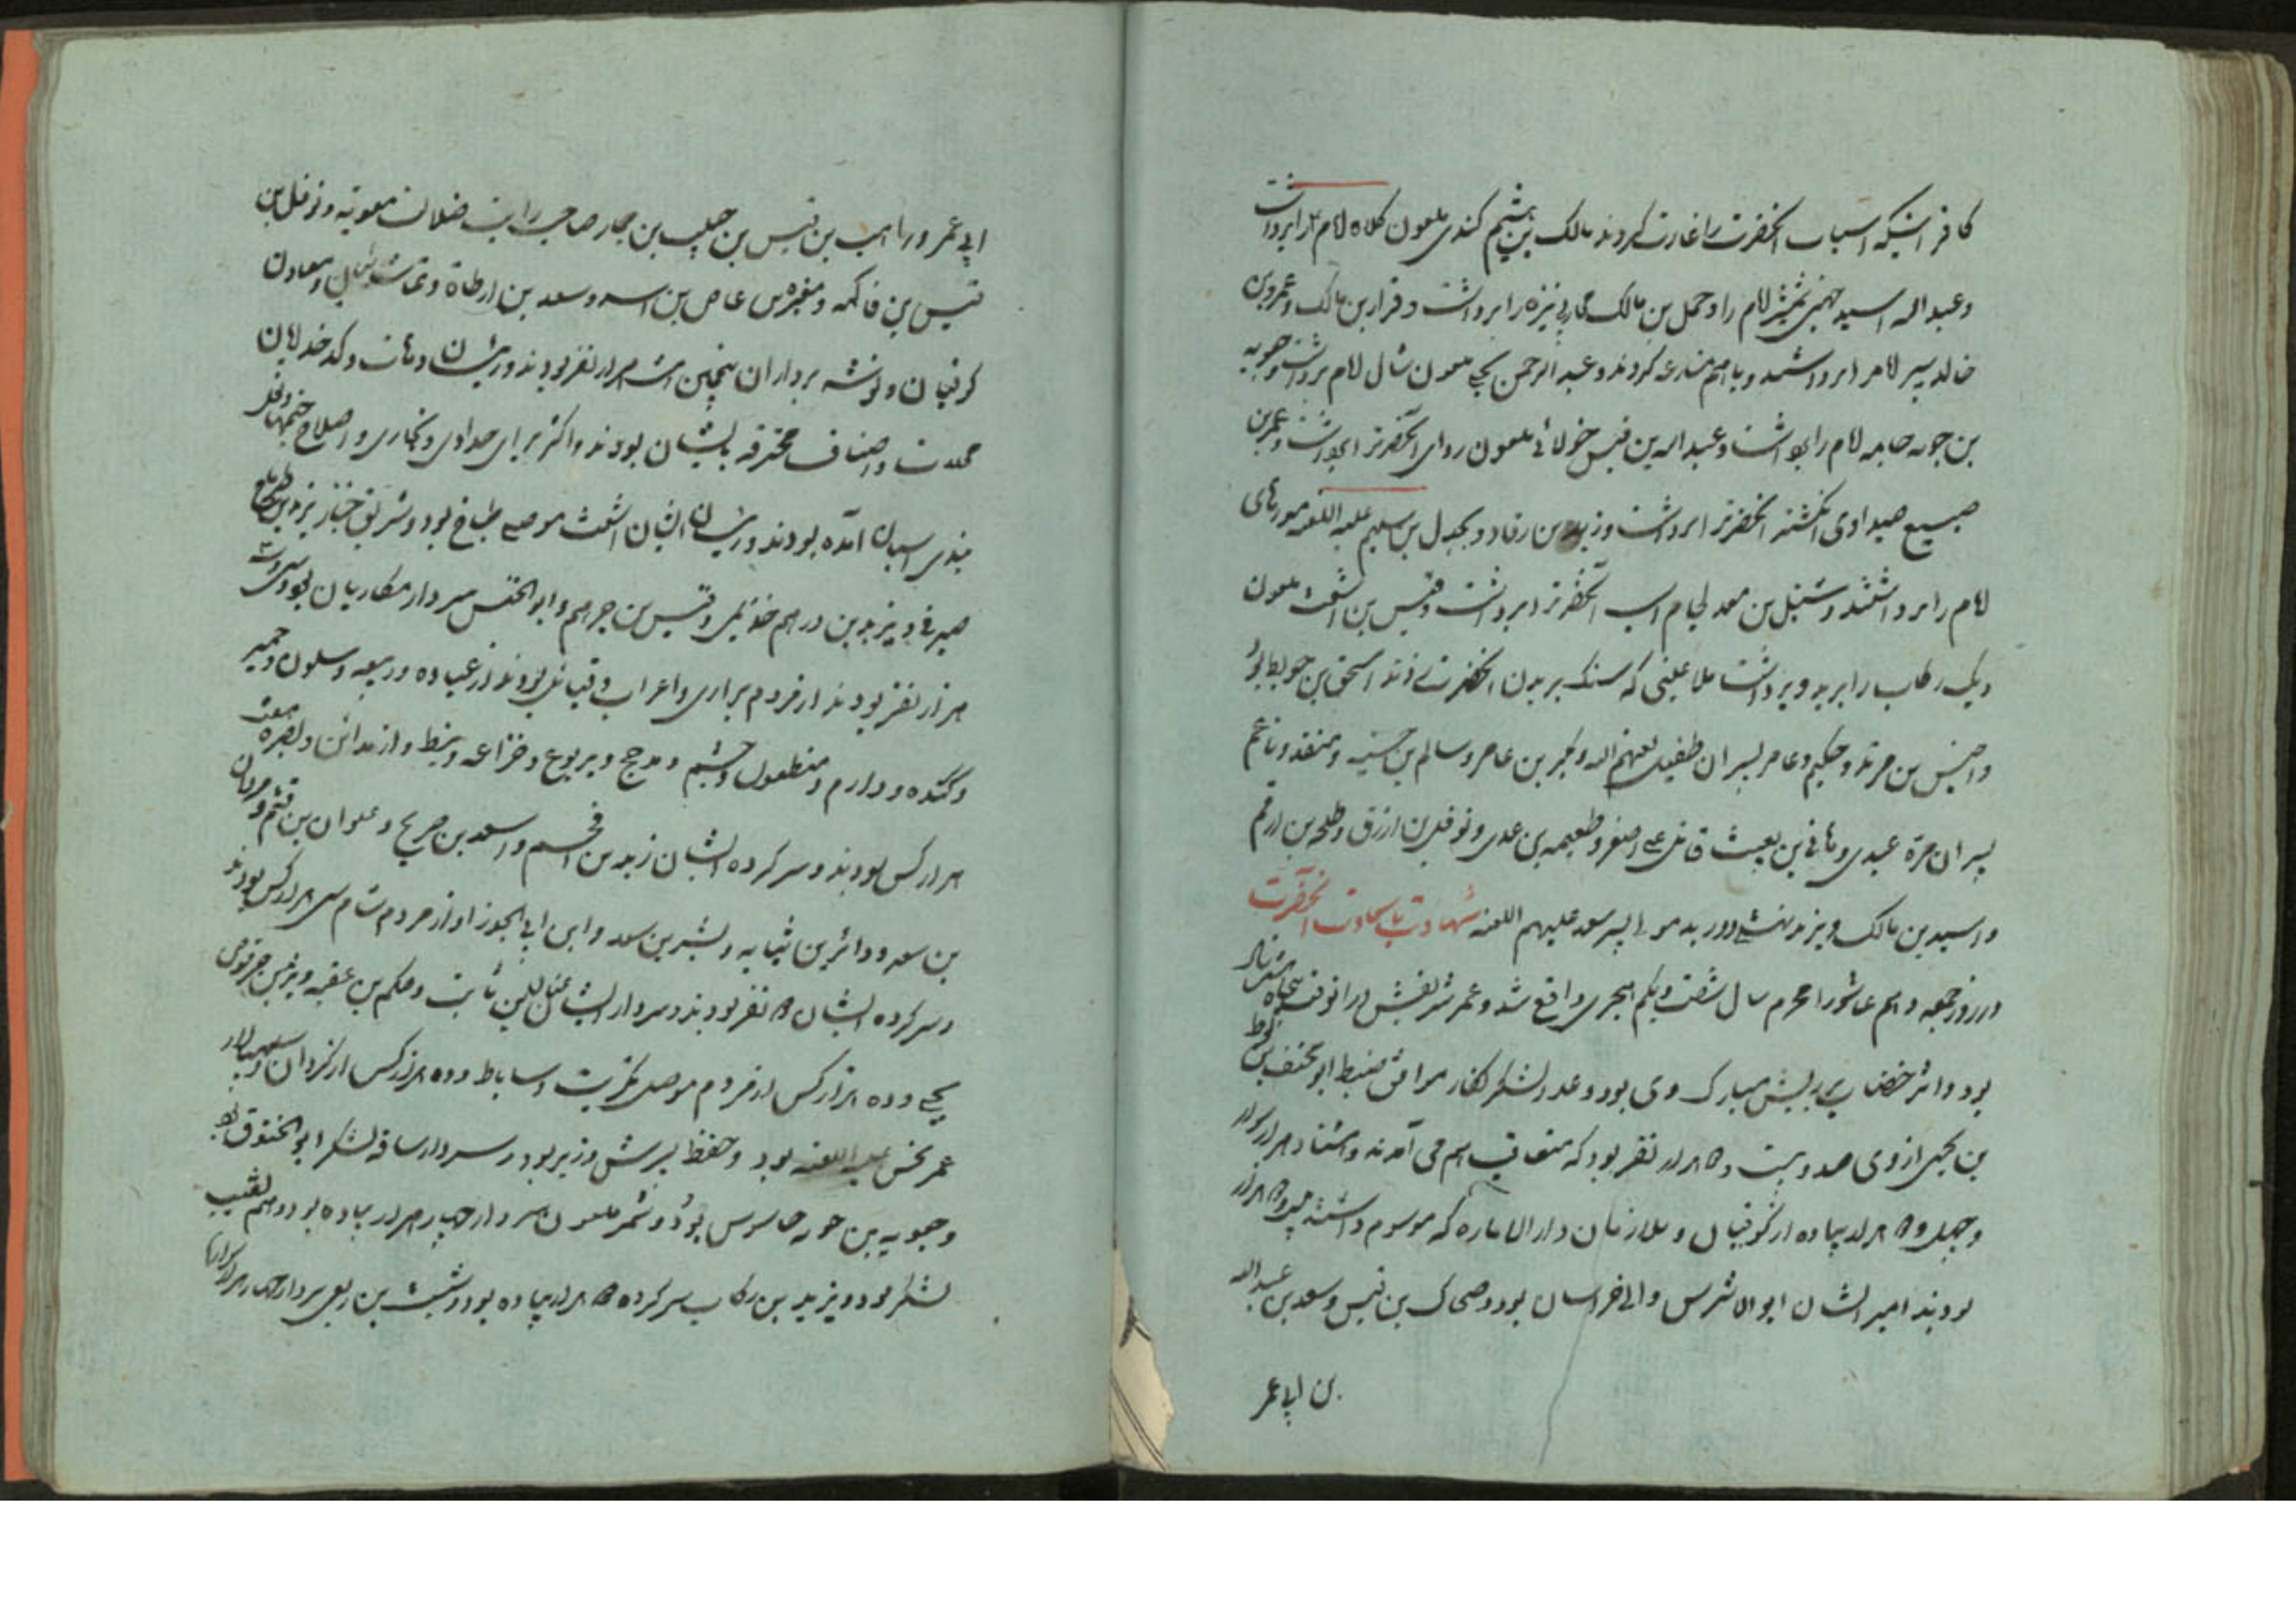 کافرانیکه اسباب آنحضرت را غارت کردند مالک بن هشیم کندی ملعون کلاه امام را برداشت
وعبداله اسید جهنی شمشیر امام را وحمل بن مالک محاربی نیزه را برداشت و قرار بن مالک وعمرو بن
خالد سپر امام را برداشتند و با هم منازعه کردند و عبدالرحمن یحیی ملعون شال امام برداشت وجویه
بن حویه جامه امام را برداشت وعبداله بن قیس خولانی ملعون ردای آنحضرت را برداشت وعمر بن
صبیح صیداوی انگشتر آنحضرت را برداشت و زید بن رقاد و بجدل بن سلیم علیه اللعنه موزهای
امام را برداشتند و سنبل بن معد لجام اسب آنحضرت را برداشت وقیس بن اشعث ملعون
و یک رکاب را برید و برداشت ملاعینی که سنک بر بدن آنحضرت زدند اسحق بن حویه بود
واخنس بن مرثد وحکیم وعامر پسران طفیل لعنهم الله وبجیر بن عامر وسالم بن خثیمه ومنقذ وناعم
پسران مرة عبدی وهانی بن بعیث قاتل علی اصغر وطعیمه بن عدی ونوفل بن ازرق وطلحه بن ارقم
واسید بن مالک ویزید و درید مولی پسر سعد علیهم اللعنه شهادت با سعادت آنحضرت
در روز جمعه دهم عاشورا محرم سال شصت ویکم هجری واقع شد وعمر شریفش در انوقت پنجاه
بود واثر خضاب بر ریش مبارک وی بود وعدد لشکر کفار موافق ضبط ابو مخنف لوط
بن یحیی ازدی صد وبیست و ۵ هزار نفر بود که متعاقب هم می آمدند وهشتاد هزار سوار
وچهل و ۵ هزار پیاده از کوفیان و ملازمان دارالاماره که موسوم داشتند چهل و ۵ هزار
بودند امیر ایشان ابوالاشرس والی خراسان بود وضحاک بن قیس وسعد بن عبدالله
بن ابی عمر
ابی عمر و راهب بن قیس بن صلیب بن صاحب رایت ضلالت معویه ونوفل بن
قیس بن فاکهه ومغیره عاص بن اسد وسعد بن ارطاة
کوفیان وتوشه برداران پنجهین هشت هزار نفر بودند و ریشان دهات وکدخدایان
محلات واصناف محترفه بایشان بودند واکثر برای حدادی ونجاری واصلاح خیمها ونعل
بندی اسبان آمده بودند و ریشان ایشان اشعث موصلی طباخ بود وشریق خباز یزید بن
صیرفی ویزید بن درهم خزیمی وقیس بن جرهم وابوالخنس سردار مکاریان بود
هزار نفر بودند از مردم براری واعراب وقبائل بودند از عباده وربیعه وسلون وحمیر
وکنده ودارم ومنظعول وخشیم ومدحج ویربوع وخزاعه ونبط واز مداین وبصره
هزار کس بودند وسرکرده ایشان زید بن اقحم واسعد بن صریح وعلوان بن قثم
بن سعد ووائر بن ثیایه وبشیر بن سعد وابن ابی الجوز او از مردم شام سی هزار کس بودند
وسرکرده ایشان ۵ نفر بودند وسردار ایشان ثابت وحکم بن عقبه
یحیی وده هزار کس از مردم موصل تکریت وساباط وده هزار کس از کردان
عمر نحس علیه اللعنه بود وحفظ پسرش وزیر بود وسردار ساقه لشکر ابوالخنوق بود
وجویه بن حویه جاسوس بود وشمر ملعون سردار چهار هزار پیاده بود وهم نقیب
لشکر بود ویزید بن رکاب سرکرده ۵ هزار پیاده بود وشبث بن ربعی سردار